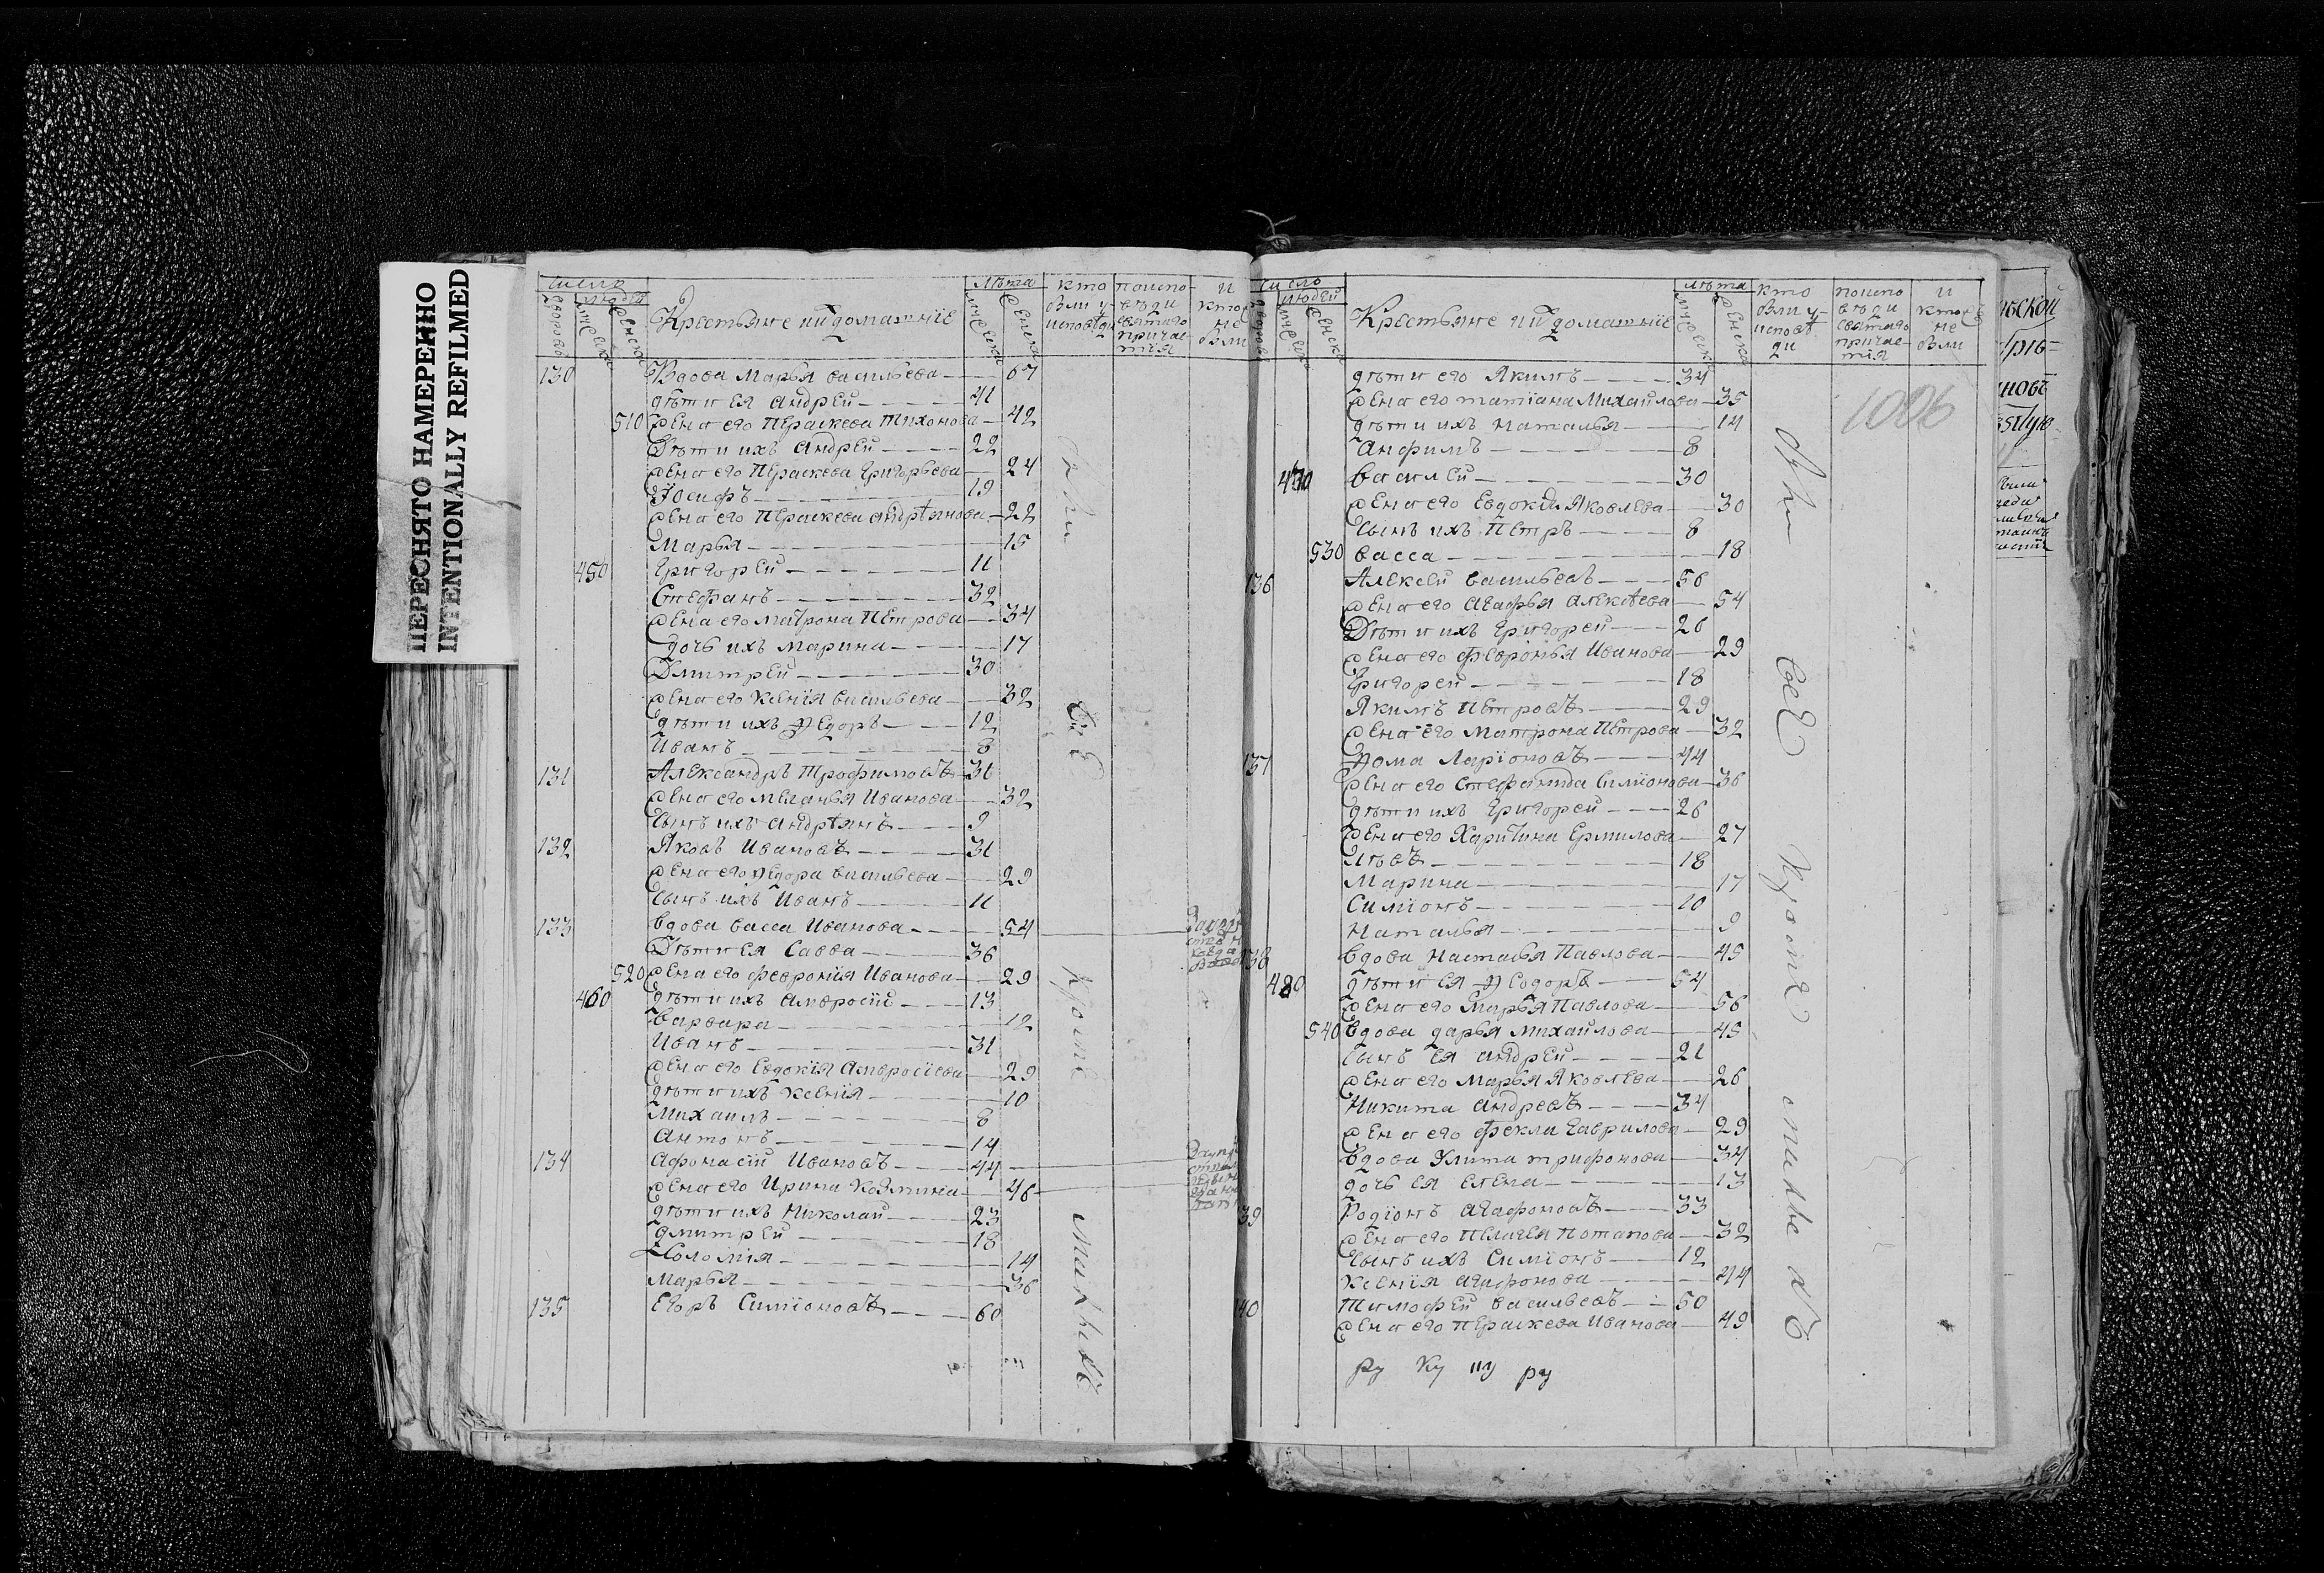 ПЕРЕСНЯТО НАМЕРЕННО
INTENTIONALLY REFILMED
Число
людей
Лѣта
Крестьяне и их домашніе
кто были у исповѣди
130 Вдова Марья васильева 67
дѣти ея Андрей 41
510 жена его Пераскева Тихонова 42
Дѣти ихъ Андрей 22
жена его Пераскева Григорьева 24
Іосифъ 19
жена его Пераскева Андрѣянова 22
Марья 15
450 Григорей 11
Стефанъ 32
жена его Матрона Петрова 34
дочь ихъ Марина 17
Дмитрей 30
жена его Ксенія васильева 32
дѣти ихъ Ѳедоръ 12
Иванъ 8
131 Александръ Трофимовъ 31
жена его Меланья Иванова 32
сынъ ихъ Андрѣянъ 9
132 Яковъ Ивановъ 31
жена его Ѳедора васильева 29
сынъ ихъ Иванъ 11
133 вдова васса Иванова 54
Дѣти ея Савва 36
520 жена его Февронія Иванова 29
460 дѣти ихъ Амвросій 13
варвара 12
Иванъ 31
жена его Евдокія Амвросіева 29
дѣти ихъ Ксенія 10
Михаилъ 8
Антонъ 14
134 Афонасій Ивановъ 44
жена его Ирина Козмина 46
дѣти ихъ Николай 23
Дмитрей 18
Соломія 14
Марья 36
135 Егоръ Симіоновъ 60
были
всѣ
кромѣ
малыхъ
Число
людей
Лѣта
Крестьяне и их домашніе
кто были у исповѣди
дѣти его Якимъ 34
жена его татіана Михайлова 35
дѣти ихъ Наталья 14
Анфимъ 8
470 василей 30
жена его Евдокія Яковлева 30
сынъ ихъ Петръ 8
530 васса 18
136 Алексей васильевъ 56
жена его Агафья Алексѣева 54
Дѣти ихъ Григорей 26
жена его Февронья Иванова 29
Григорей 18
Якимъ Петровъ 29
жена его Матрона Петрова 32
137 Ѳома Ларіоновъ 44
жена его Стефанида Симіонова 36
дѣти ихъ Григорей 26
жена его Харитина Ермилова 27
Львъ 18
Марина 17
Симіонъ 10
Наталья 9
138 вдова Настасья Павлова 45
480 дѣти ея Ѳедоръ 54
жена его Марья Павлова 56
540 вдова дарья Михайлова 45
сынъ ея андрей 21
жена его Марья Яковлева 26
Никита андреевъ 34
жена его Фекла Гаврилова 29
вдова Улита трифонова 34
дочь ея елена 13
39 Родіонъ агафоновъ 33
жена его Пелагея Потапова 32
сынъ ихъ Симіонъ 12
Ксенія агафонова 44
40 Тимофей васильевъ 50
жена его Пераскева Иванова 49
ру ку му ру
1006
были
всѣ
кромѣ